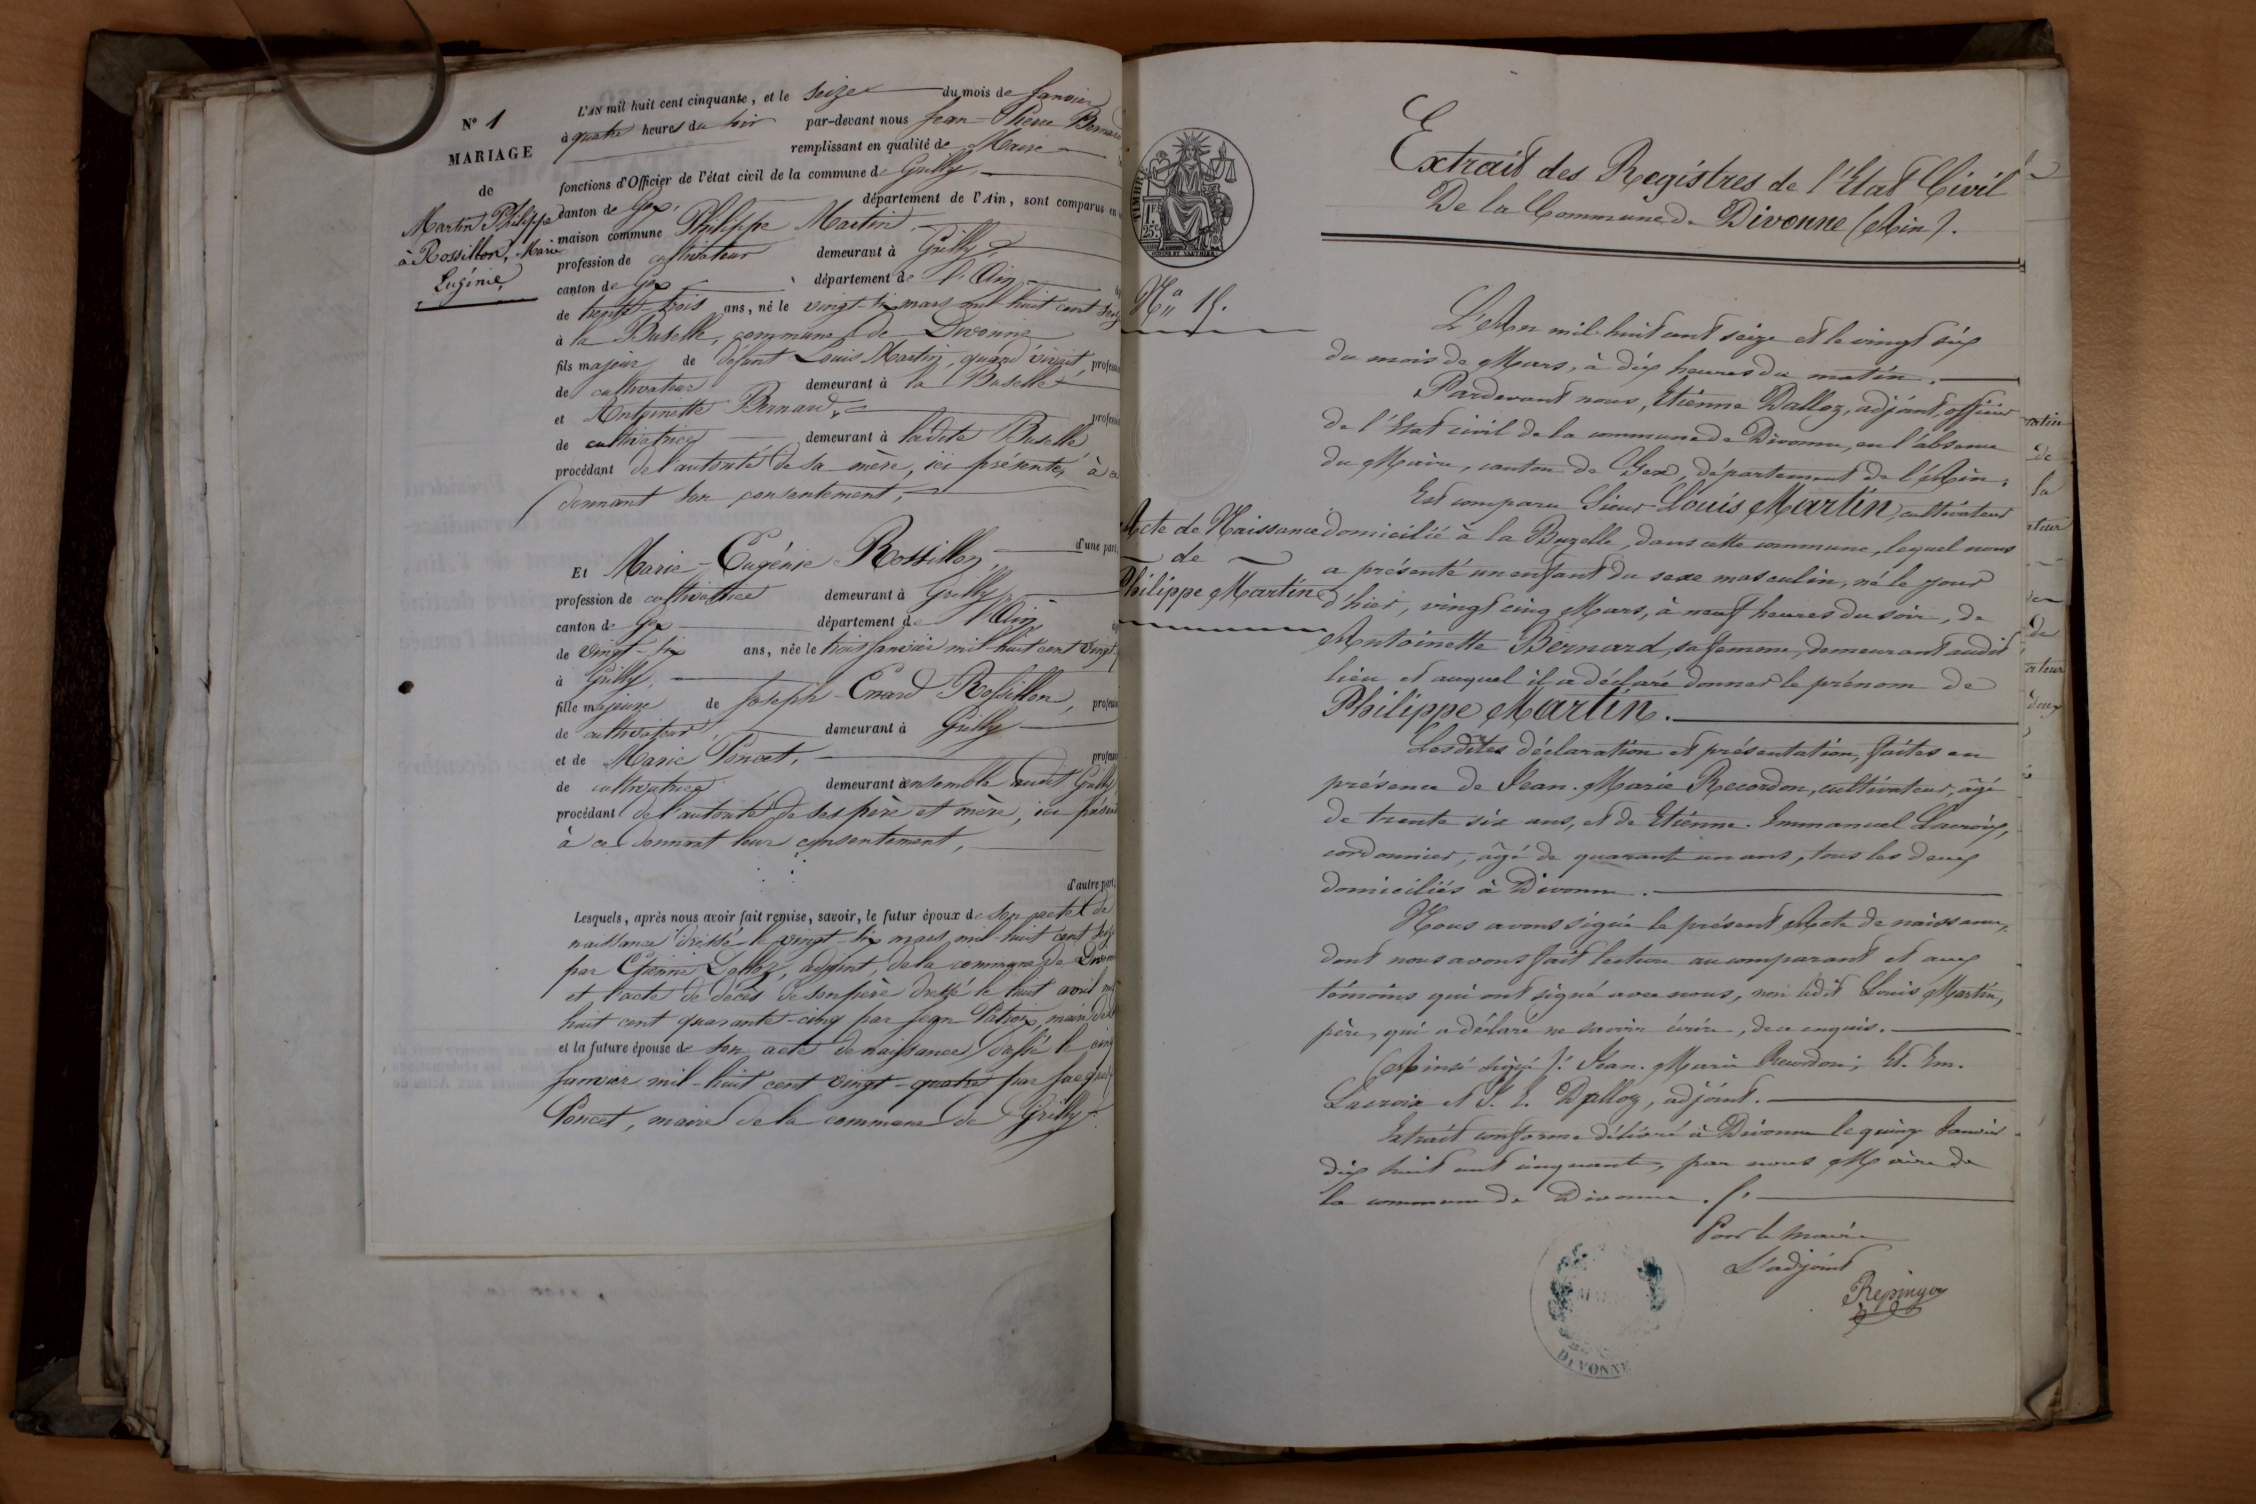 N° 1
MARIAGE
de
Martin Philippe
à Rossillon, Marie
Eugénie,
L'AN mil huit cent cinquante, et le seize du mois de Janvier
à quatre heures du soir par-devant nous Jean-Pierre Bernard
remplissant en qualité de Maire
fonctions d'Officier de l'état civil de la commune de Grilly,
canton de Gex, département de l'Ain, sont comparus en
maison commune Philippe Martin
profession de cultivateur demeurant à Grilly,
canton de Gex département de l'Ain
de trente-trois ans, né le vingt-six mars mil huit cent seize
à la Buselle, commune de Divonne
fils majeur de défunt Louis Martin, quand vivait,
de cultivateur demeurant à la Buselle
et Antoinette Bernard,
de cultivatrice demeurant à ladite Buselle
procédant de l'autorité de sa mère, ici présente, à ce
donnant son consentement,
d'une part,
Et Marie-Eugénie Rossillon,
profession de cultivatrice demeurant à Grilly,
canton de Gex département de l'Ain,
de vingt-six ans, née le trois Janvier mil huit cent vingt
à Grilly,
fille majeure de Joseph Rossillon,
de cultivateur demeurant à Grilly
et de Marie Poncet,
de cultivatrice demeurant ensemble audit Grilly
procédant de l'autorité de ses père et mère, ici présents
à ce donnant leur consentement,
d'autre part,
Lesquels, après nous avoir fait remise, savoir, le futur époux de son acte de
naissance dressé le vingt-six mars mil huit cent seize
par Etienne Dalloz, adjoint, de la commune de Divonne
et l'acte de décès de son père dressé le huit avril mil
huit cent quarante-cinq par Jean Patroix, maire
et la future épouse de son acte de naissance dressé le cinq
Janvier mil-huit cent vingt-quatre par Jacques
Poncet, maire de la commune de Grilly.
TIMBRE
1F
25c
Extrait des Registres de l'Etat Civil
De la Commune de Divonne (Ain).
N° 15.
L'An mil huit cent seize et le vingt six
du mois de Mars, à dix heures du matin.
Pardevant nous, Etienne Dalloz, adjoint, officier
de l'Etat civil de la commune de Divonne, en l'absence
du Maire, canton de Gex, département de l'Ain,
Est comparu Sieur Louis Martin, cultivateur
Acte de Naissance domicilié à la Buzelle, dans cette commune, lequel nous
de a présenté un enfant du sexe masculin, né le jour
Philippe Martin d'hier, vingt cinq Mars, à neuf heures du soir, de
Antoinette Bernard, sa femme, demeurant audit
lieu et auquel il a déclaré donner le prénom de
Philippe Martin.
Lesdites déclaration et présentation, faites en
présence de Jean-Marie Recordon, cultivateur, âgé
de trente six ans, et de Etienne-Emmanuel Lacroix,
cordonnier, âgé de quarant un ans, tous les deux
domiciliés à Divonne.
Nous avons signé le présent Acte de naissance,
dont nous avons fait lecture au comparant et aux
témoins qui ont signé avec nous, non ledit Louis Martin,
père, qui a déclaré ne savoir écrire, de ce enquis.
(Ainsi signé): Jean-Marie Recordon; Et. Em.
Lacroix et J. E. Dalloz, adjoint.
Extrait conforme délivré à Divonne le quinze Janvier
dix huit cent cinquante, par nous Maire de
la commune de Divonne.
Pour le maire
L'adjoint
DIVONNE